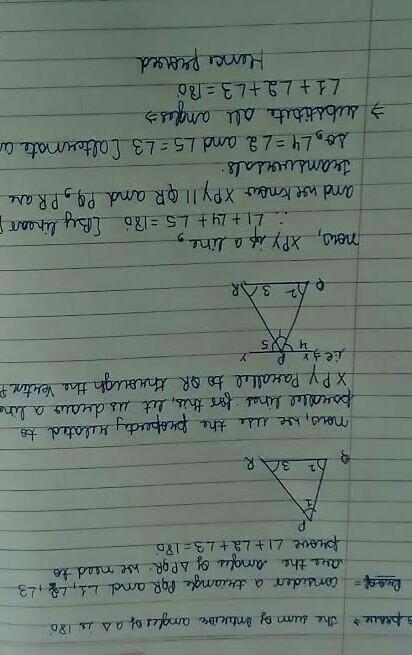 prove ⇒ The sum of interior angles of a Δ is 180°
Proof = consider a triangle PQR and ∠1, ∠2, ∠3
are the angles of ΔPQR. we need to
prove ∠1+∠2+∠3=180°
P
1
Q 2 3 R
now, we use the property related to
parallel lines for this, let us draw a line
XPY Parallel to QR through the Vertex P
i.e ⇒ X P Y
4 1 5
Q 2 3 R
now, XPY is a line,
∴ ∠1+∠4+∠5=180° [By linear
and we know XPY||QR and PQ, PR are
transversals.
So, ∠4=∠2 and ∠5=∠3 [alternate
⇒ substitute all angles⇒
∠1+∠2+∠3=180°
Hence proved